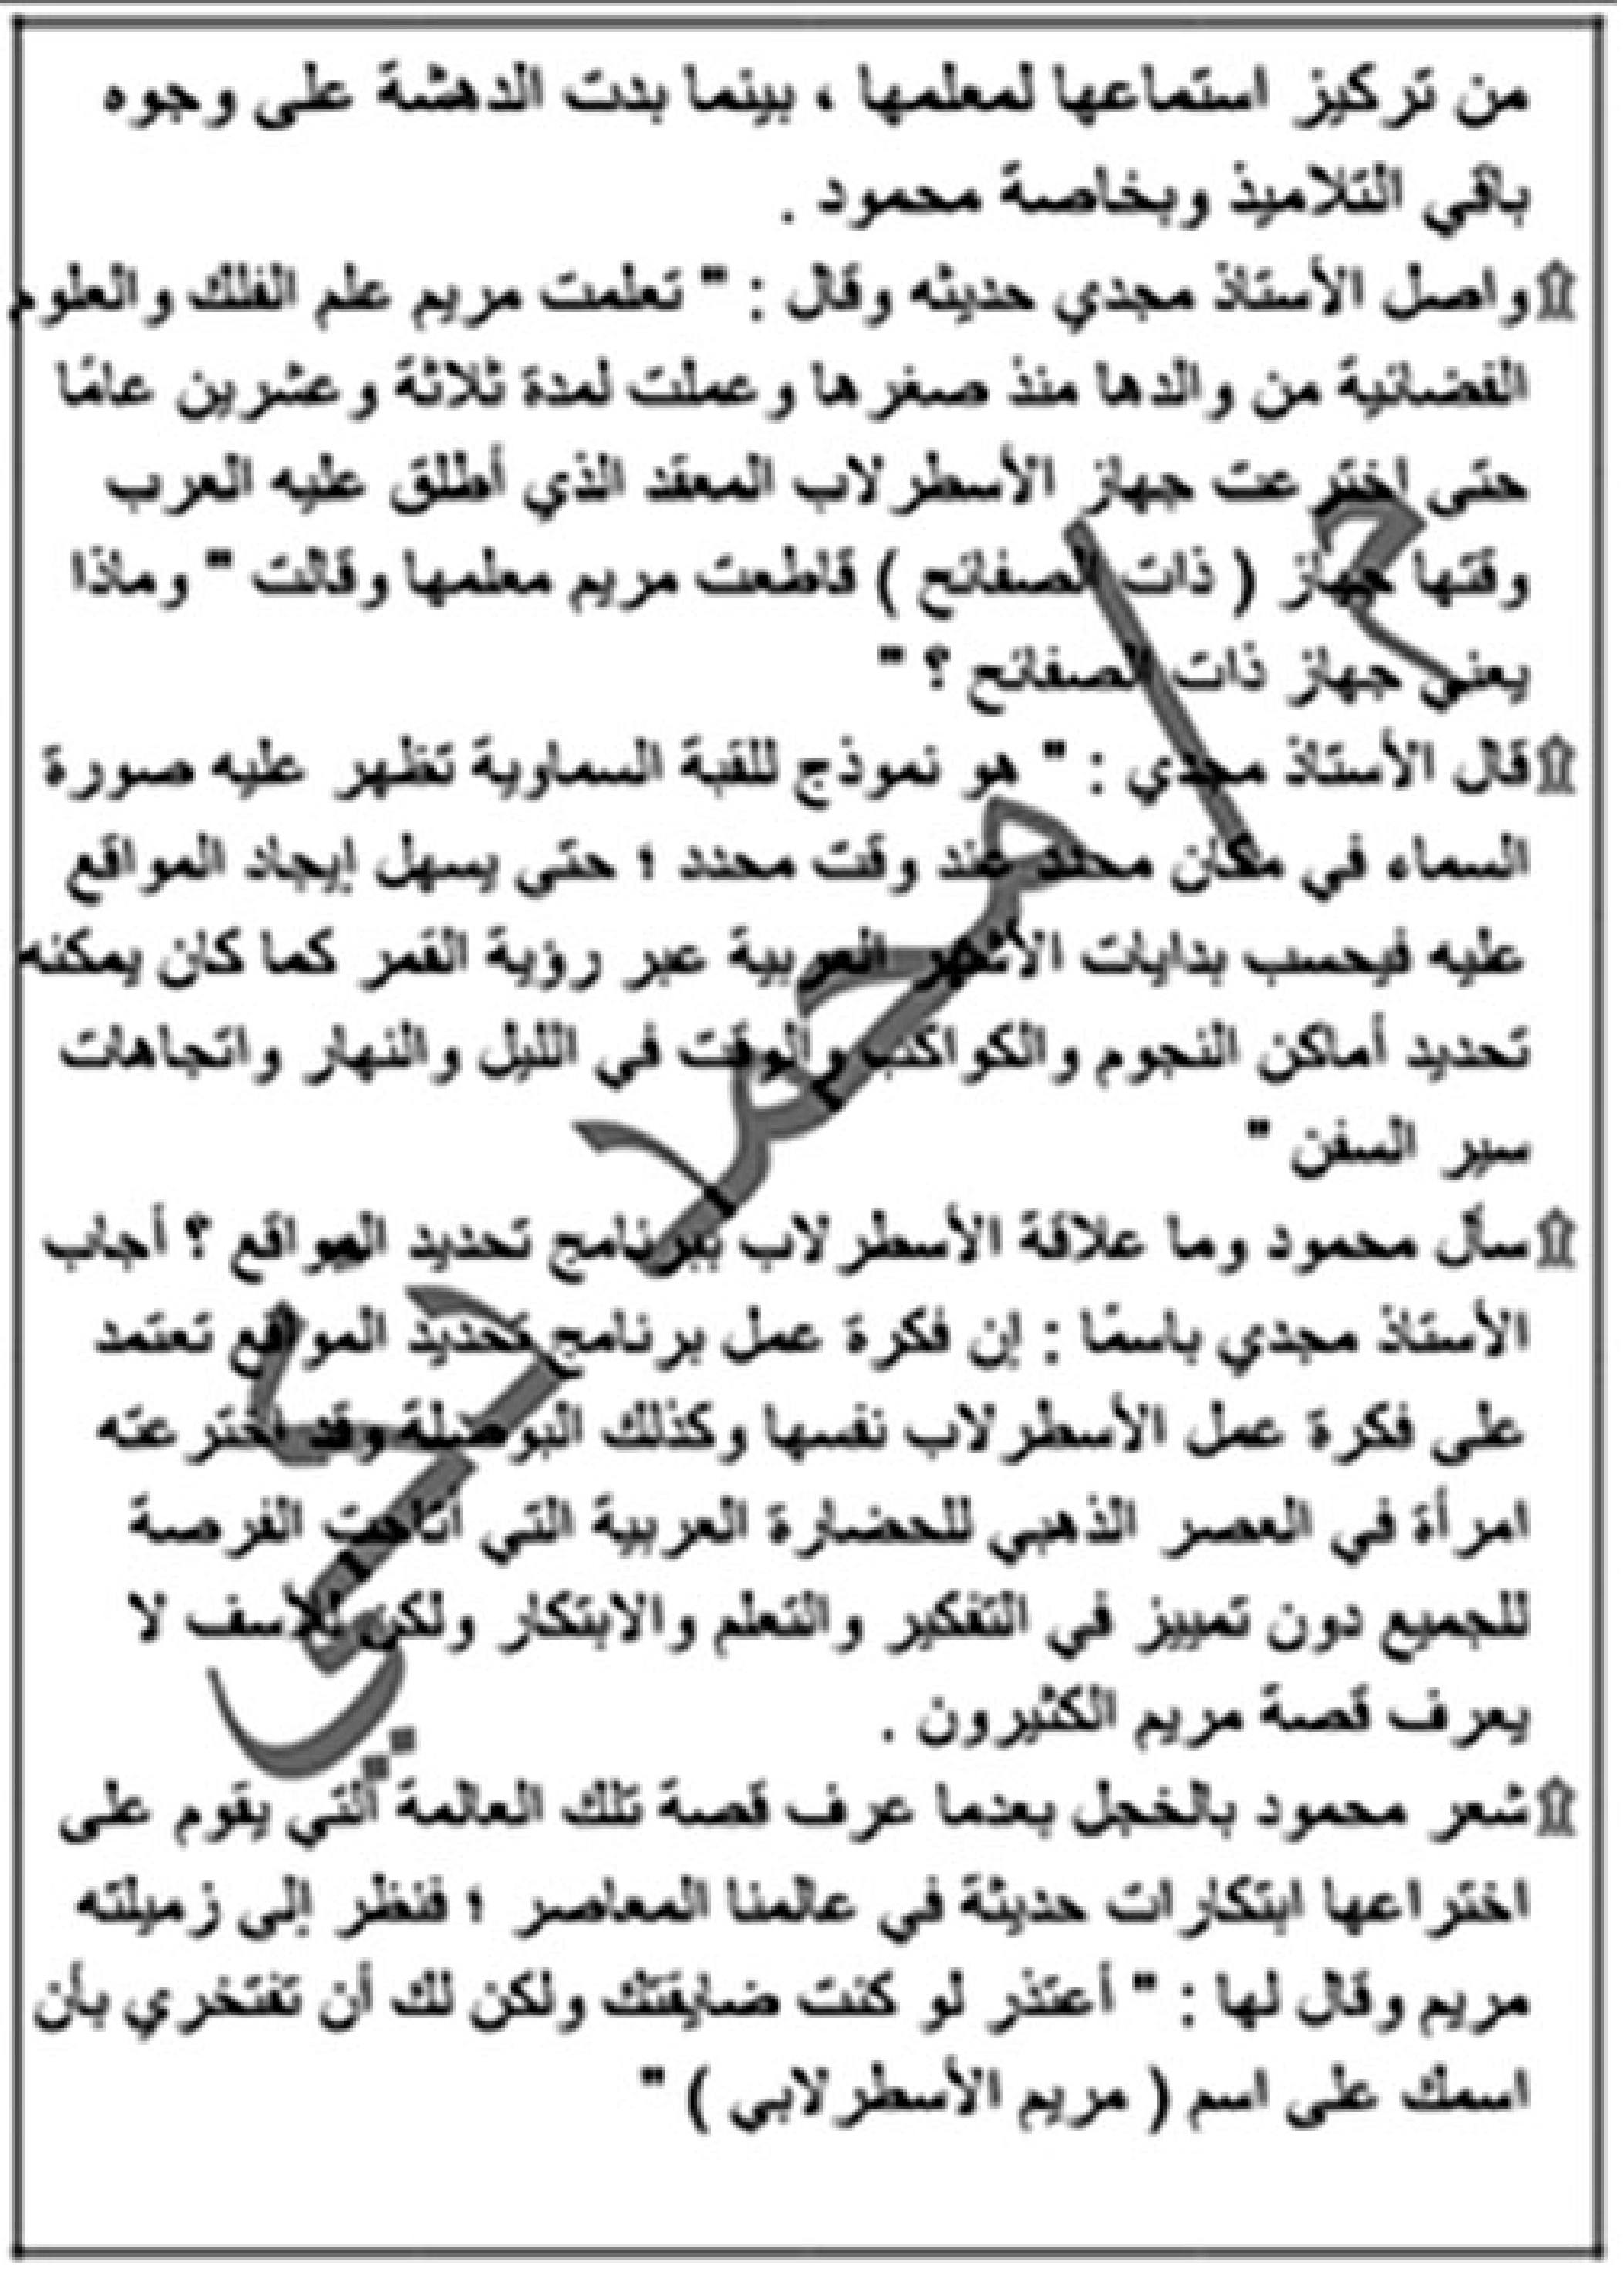 من تركيز استماعها لمعلمها ، بينما بدت الدهشة على وجوه
باقي التلاميذ وبخاصة محمود .
واصل الأستاذ مجدي حديثه وقال : " تعلمت مريم علم الفلك والعلوم
الفضائية من والدها منذ صغرها وعملت لمدة ثلاثة وعشرين عامًا
حتى اخترعت جهاز الأسطرلاب المعقد الذي أطلق عليه العرب
وقتها جهاز ( ذات الصفائح ) قاطعت مريم معلمها وقالت " وماذا
يعني جهاز ذات الصفائح ؟ "
قال الأستاذ مجدي : " هو نموذج للقبة السماوية تظهر عليه صورة
السماء في مكان محدد عند وقت محدد ؛ حتى يسهل إيجاد المواقع
عليه فيحسب بدايات الأشهر العربية عبر رؤية القمر كما كان يمكنه
تحديد أماكن النجوم والكواكب والوقت في الليل والنهار واتجاهات
سير السفن "
سأل محمود وما علاقة الأسطرلاب ببرنامج تحديد المواقع ؟ أجاب
الأستاذ مجدي باسمًا : إن فكرة عمل برنامج تحديد المواقع تعتمد
على فكرة عمل الأسطرلاب نفسها وكذلك البوصلة وقد اخترعته
امرأة في العصر الذهبي للحضارة العربية التي أتاحت الفرصة
للجميع دون تمييز في التفكير والتعلم والابتكار ولكن للأسف لا
يعرف قصة مريم الكثيرون .
شعر محمود بالخجل بعدما عرف قصة تلك العالمة التي يقوم على
اختراعها ابتكارات حديثة في عالمنا المعاصر ؛ فنظر إلى زميلته
مريم وقال لها : " أعتذر لو كنت ضايقتك ولكن لك أن تفتخري بأن
اسمك على اسم ( مريم الأسطرلابي ) "